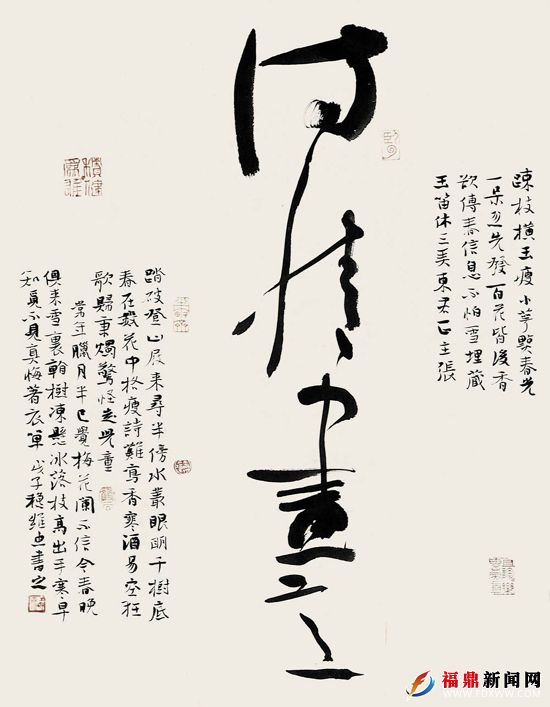 情
畫
疎枝橫玉瘦小萼點春光
一朵忽先發百花皆後香
欲傳春信息不怕雪埋藏
玉笛休三弄東君正主張
踏破登山屐來尋半傍水叢眼明千樹底
春在數花中格瘦詩難寫香寒酒易空狂
歌歸秉燭驚怪走兒童
常年臘月半已覺梅花闌不信今春晚
俱來雪裏看樹凍懸冰落枝高出手寒早
知覓不見真悔著衣單 戊子維書之
福鼎新闻网